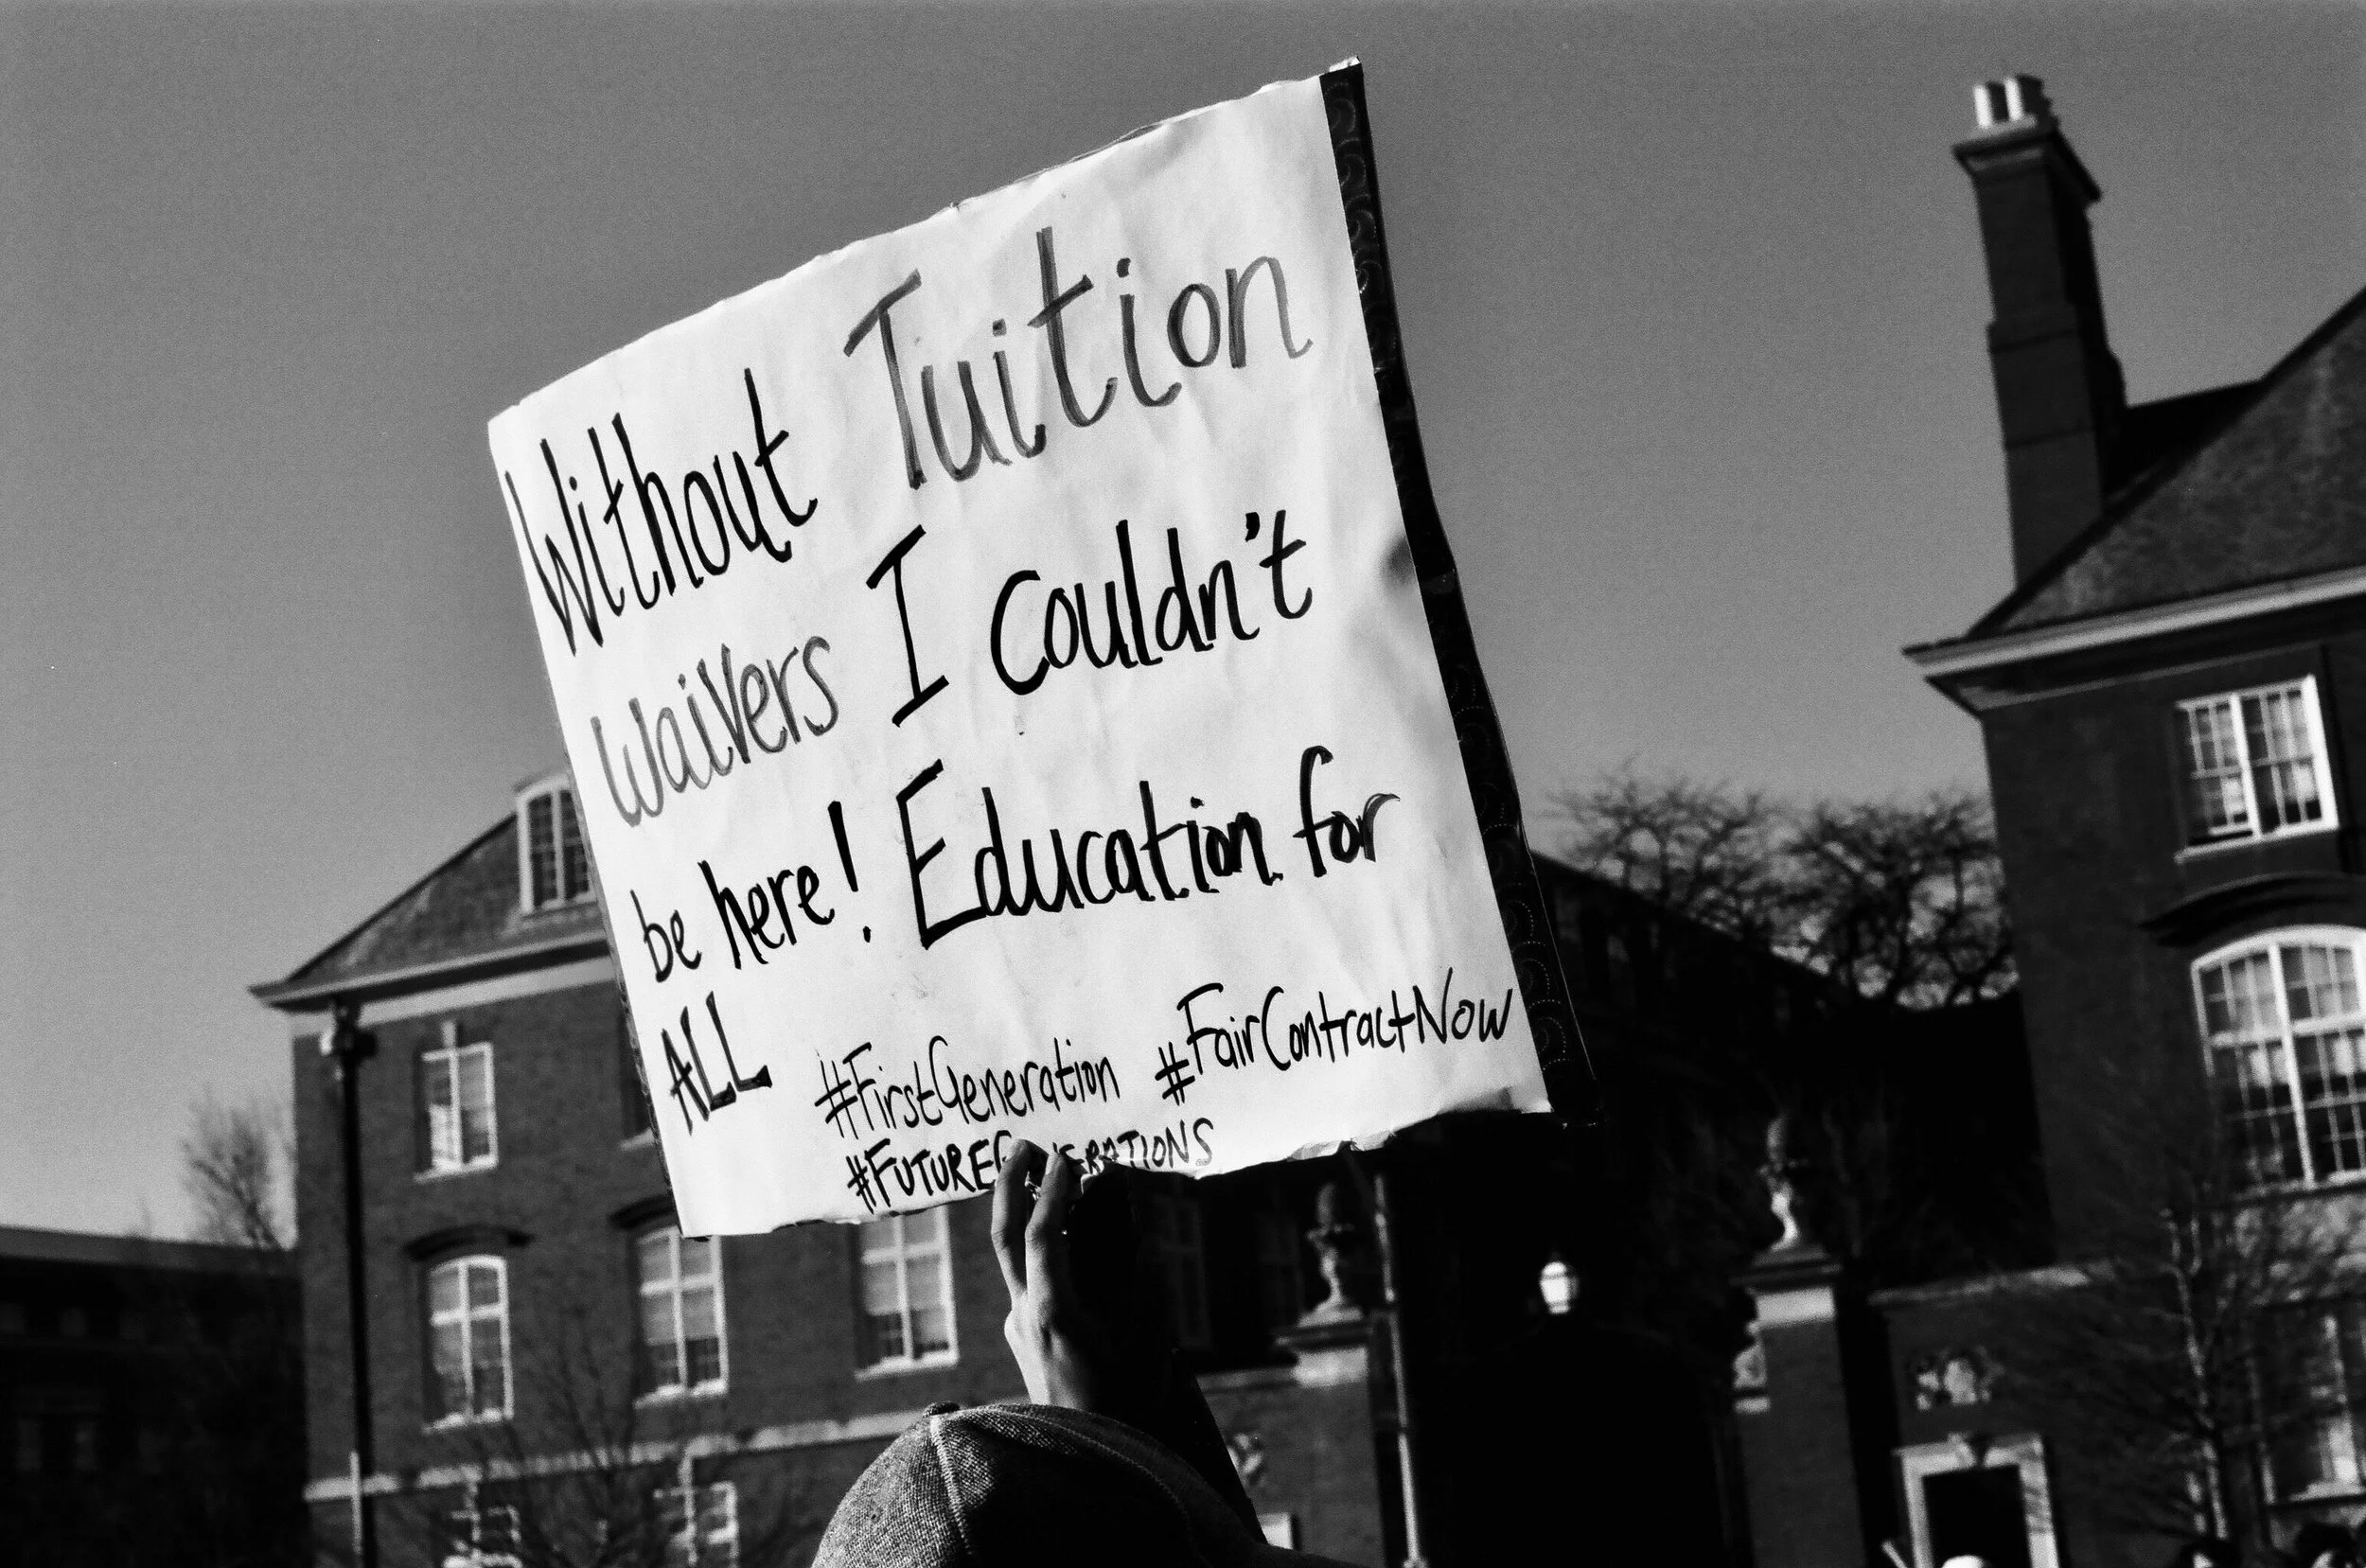 Without Tuition
waivers I couldn't
be here! Education for
ALL #FirstGeneration #FairContractNow